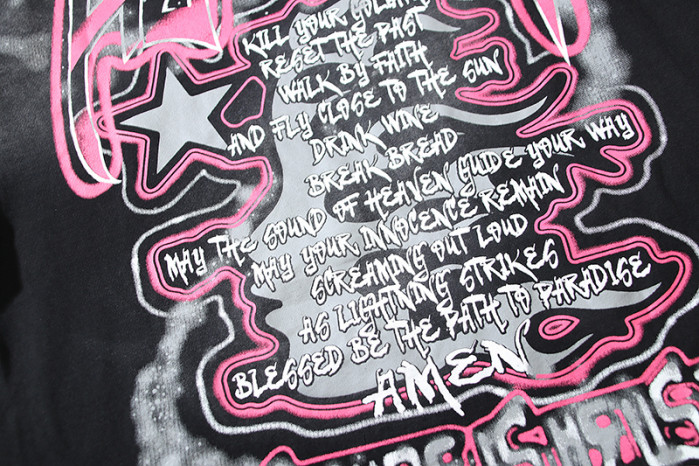 KILL YOUR
RESET THE PAST
WALK BY FAITH
AND FLY CLOSE TO THE SUN
DRINK WINE
BREAK BREAD
MAY THE SOUND OF HEAVEN GUIDE YOUR WAY
MAY YOUR INNOCENCE REMAIN
SCREAMING OUT LOUD
AS LIGHTNING STRIKES
BLESSED BE THE PATH TO PARADISE
AMEN